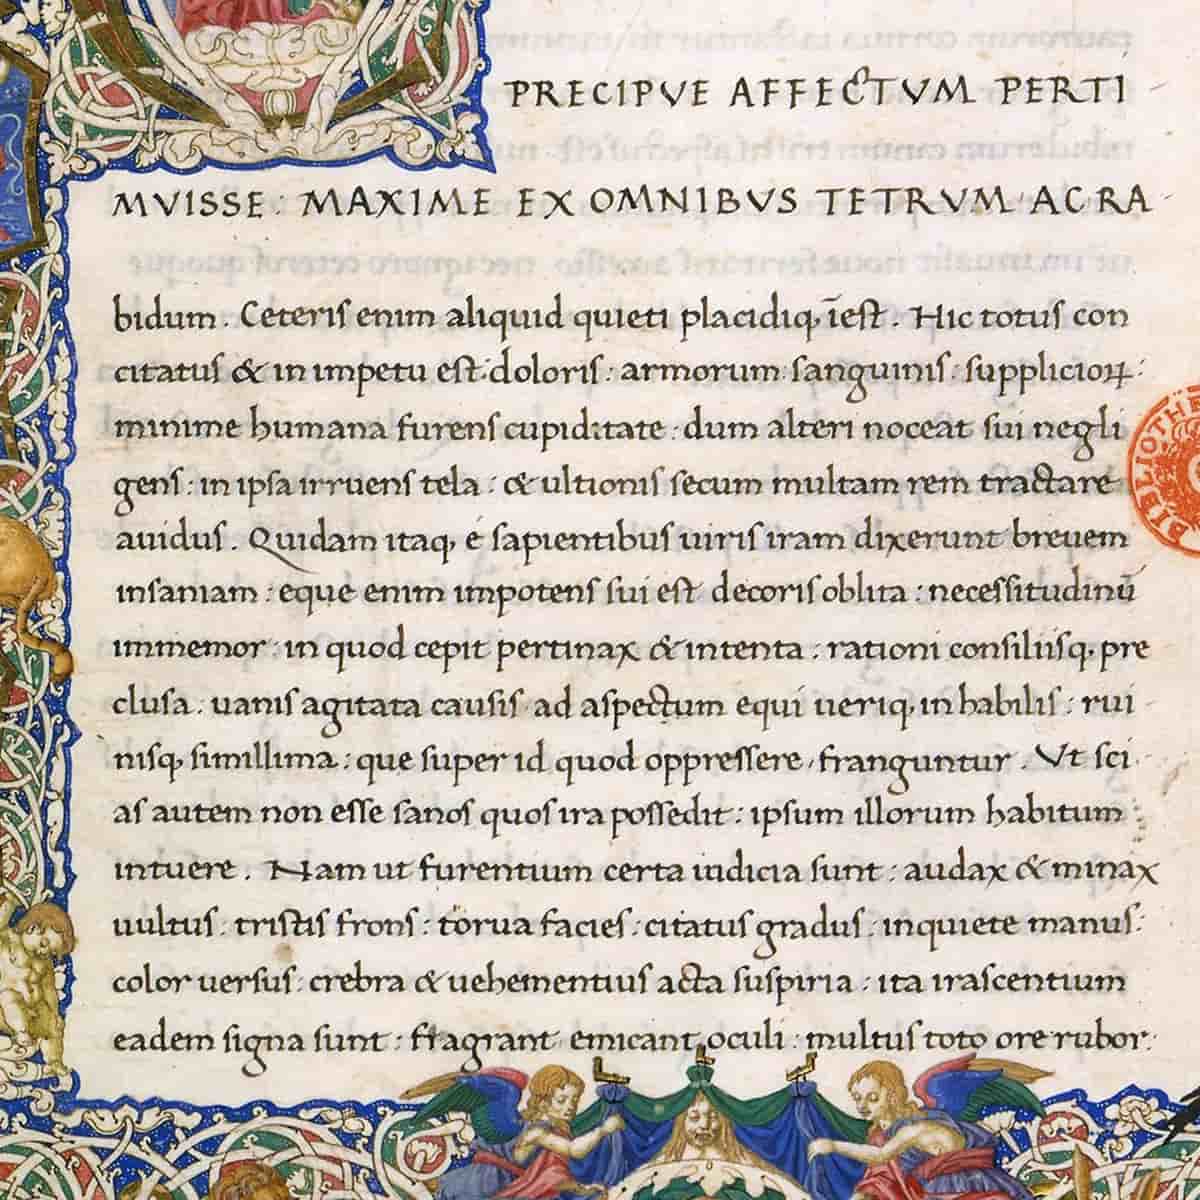 PRECIPVE AFFECTVM PERTI
MVISSE. MAXIME EX OMNIBVS TETRVM AC RA
bidum. Ceteris enim aliquid quieti placidiq; īest. Hic totus con
citatus & in impetu est: doloris: armorum: sanguinis: supplicioꝝ:
minime humana furens cupiditate: dum alteri noceat sui negli
gens: in ipsa irruens tela: & ultionis secum multam rem tractare
auidus. Quidam itaq; é sapientibus uiris iram dixerunt breuem
insaniam: eque enim impotens sui est decoris oblita: necessitudinū
immemor: in quod cepit pertinax & intenta: rationi consiliisq; pre
clusa: uanis agitata causis ad aspectum equi ueriq; in habilis: rui
nisq; simillima: que super id quod oppressere, franguntur. Vt sci
as autem non esse sanos quos ira possedit: ipsum illorum habitum
intuere. Nam ut furentium certa iudicia sunt: audax & minax
uultus: tristis frons: torua facies: citatus gradus: inquiete manus:
color uersus: crebra & uehementius acta suspiria: ita irascentium
eadem signa sunt: flagrant emicant oculi: multus toto ore rubor:
BIBLIOTHE